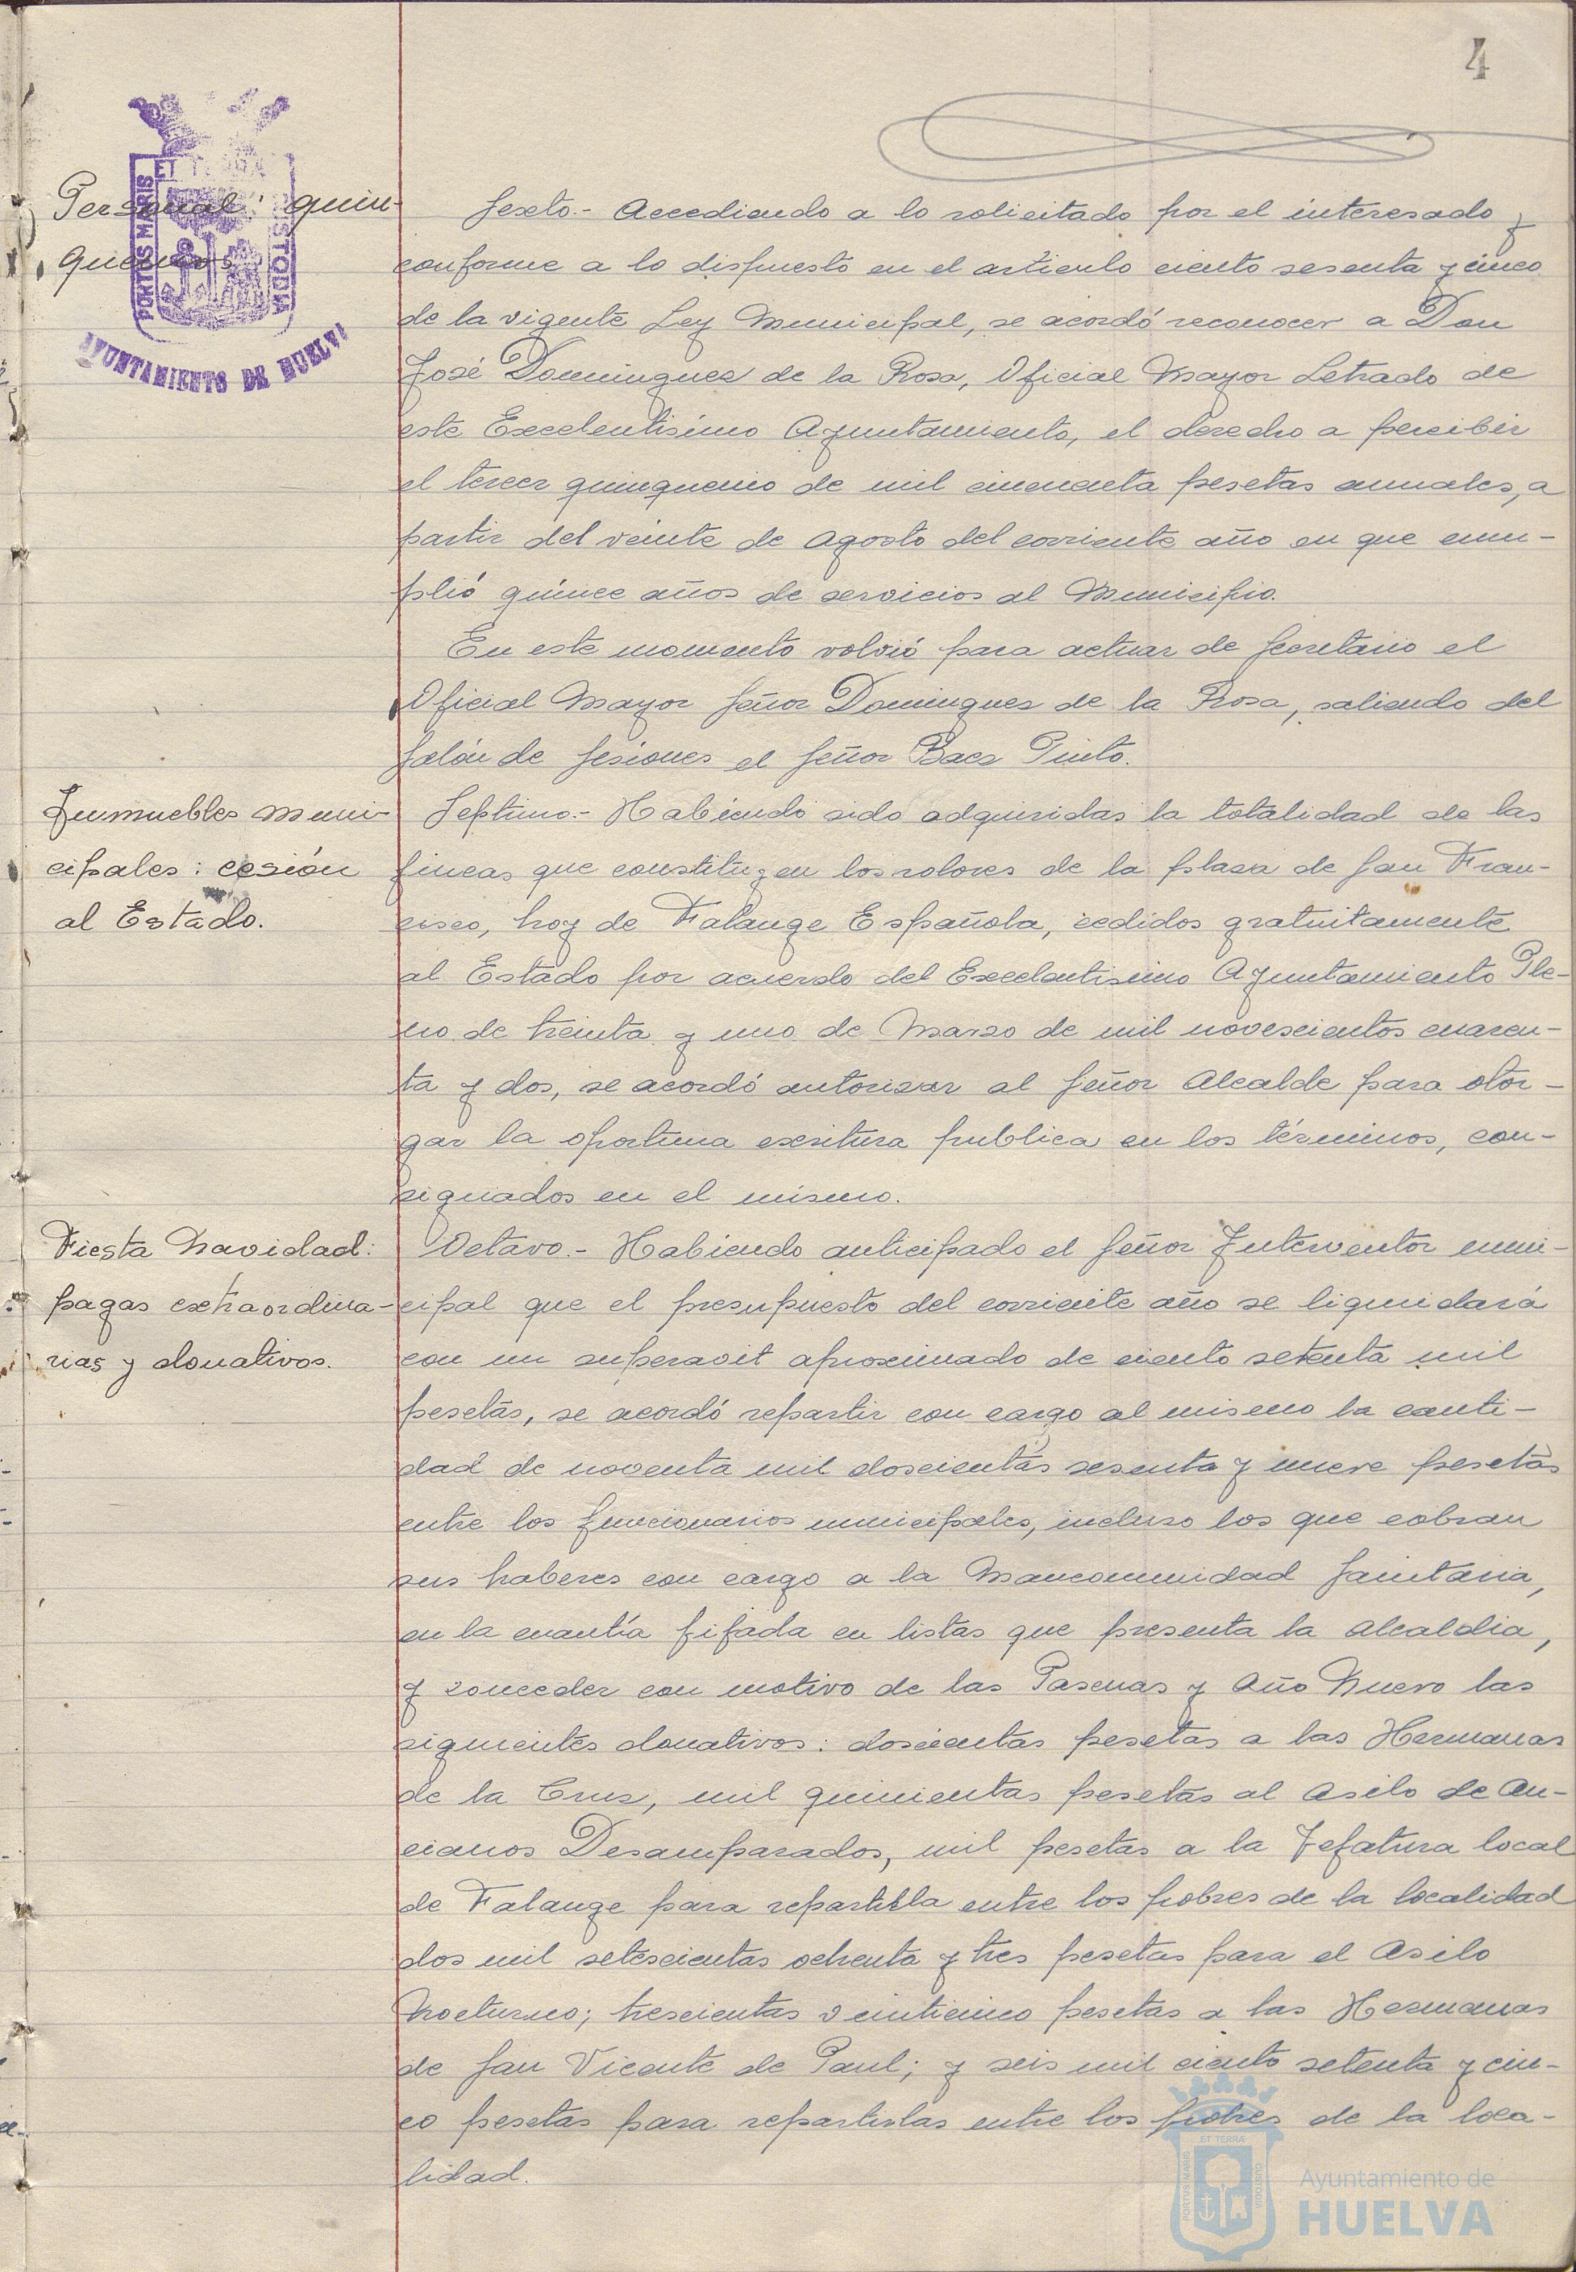 4
PORTUS MARIS
ET TERRA
CUSTODIA
AYUNTAMIENTO DE HUELVA
Personal: quin-
quenios
Sexto.- Accediendo a lo solicitado por el interesado y
conforme a lo dispuesto en el articulo ciento sesenta y cinco
de la vigente Ley Municipal, se acordó reconocer a Don
José Dominguez de la Rosa, Oficial Mayor Letrado de
este Excelentísimo Ayuntamiento, el derecho a percibir
el tercer quinquenio de mil cincuenta pesetas anuales, a
partir del veinte de Agosto del corriente año en que cum-
plió quince años de servicios al Municipio.
En este momento volvió para actuar de Secretario el
Oficial Mayor Señor Dominguez de la Rosa, saliendo del
Salón de Sesiones el Señor Baez Pinto.
Inmuebles muni-
cipales: cesión
al Estado.
Septimo.- Habiendo sido adquiridas la totalidad de las
fincas que constituyen los solares de la plaza de San Fran-
cisco, hoy de Falange Española, cedidos gratuitamente
al Estado por acuerdo del Excelentisimo Ayuntamiento Ple-
no de treinta y uno de Marzo de mil novescientos cuaren-
ta y dos, se acordó autorizar al Señor Alcalde para otor-
gar la oportuna escritura publica en los términos, con-
signados en el mismo.
Fiesta Navidad:
pagas extraordina-
rias y donativos.
Octavo.- Habiendo anticipado el Señor Interventor muni-
cipal que el presupuesto del corriente año se liquidará
con un superavit aproximado de ciento setenta mil
pesetas, se acordó repartir con cargo al mismo la canti-
dad de noventa mil doscientas sesenta y nueve pesetas
entre los funcionarios municipales, incluso los que cobran
sus haberes con cargo a la Mancomunidad Sanitaria,
en la cuantía fijada en listas que presenta la Alcaldia,
y conceder con motivo de las Pascuas y Año Nuevo las
siguientes donativos: doscientas pesetas a las Hermanas
de la Cruz, mil quinientas pesetas al Asilo de An-
cianos Desamparados, mil pesetas a la Jefatura local
de Falange para repartirla entre los pobres de la localidad
dos mil setescientas ochenta y tres pesetas para el Asilo
Nocturno; trescientas veinticinco pesetas a las Hermanas
de San Vicente de Paul; y seis mil ciento setenta y cin-
co pesetas para repartirlas entre los pobres de la loca-
lidad.
PORTUS MARIS
ET TERRA
CUSTODIA
Ayuntamiento de
HUELVA